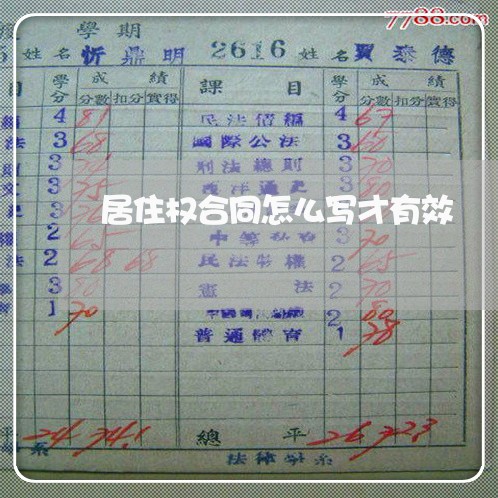 7788.com
學期
姓名 忻鼎明 2616 姓名 賈泰德
目 學分 成績 課目 學分 成績
分數 扣分 實得 分數 扣分 實得
4 81 民法債編 4 67
法 3 68 國際公法 3 60
3 刑法總則 3 70
3 75 西洋通史 3 80
居住权合同怎么写才有效
2 65 3 70
法 2 68 68 民法物權 2 65
3 80 憲法 2 70
1 70 2 80
普通體育 1 78
平 24 74.1 總平 26 72.3
系 法律學系